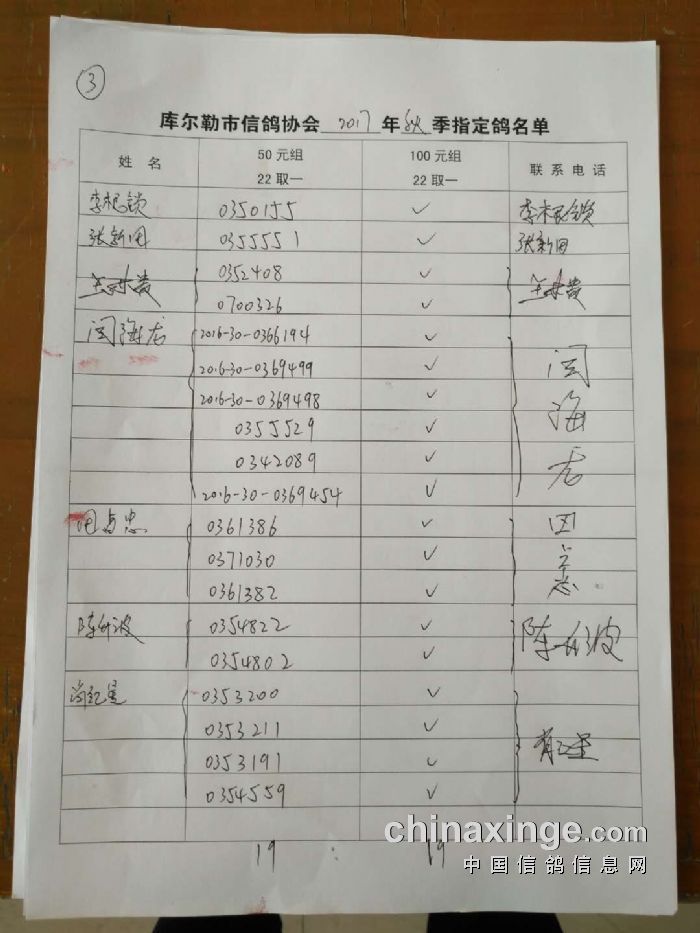 ③
库尔勒市信鸽协会 2017 年 秋 季指定鸽名单
姓 名 50元组 22取一 100元组 22取一 联系电话
李根锁 0350155 ✓ 李根锁
张新国 0355551 ✓ 张新国
0352408 ✓
0700326 ✓
闫海龙 2016-30-0366194 ✓ 闫海龙
2016-30-0369499 ✓
2016-30-0369498 ✓
0355529 ✓
0342089 ✓
2016-30-0369454 ✓
0361386 ✓
0371030 ✓
0361382 ✓
0354822 ✓
0354802 ✓
0353200 ✓
0353211 ✓
0353191 ✓
0354559 ✓
19 : 19
chinaxinge.com
中国信鸽信息网